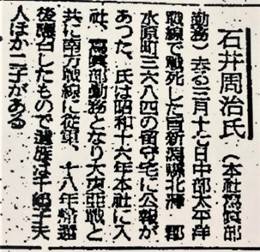 石井周治氏（本社寫眞部
勤務）去る三月十七日中部太平洋
戰線で戰死した旨新潟縣北蒲 郡
水原町三六八四の留守宅に公報が
あつた、氏は昭和十六年本社に入
社、寫眞部勤務となり大東亞戰と
共に南方戰線に從軍、十八年歸還
後應召したもので遺族は千 子夫
人ほか二子がある